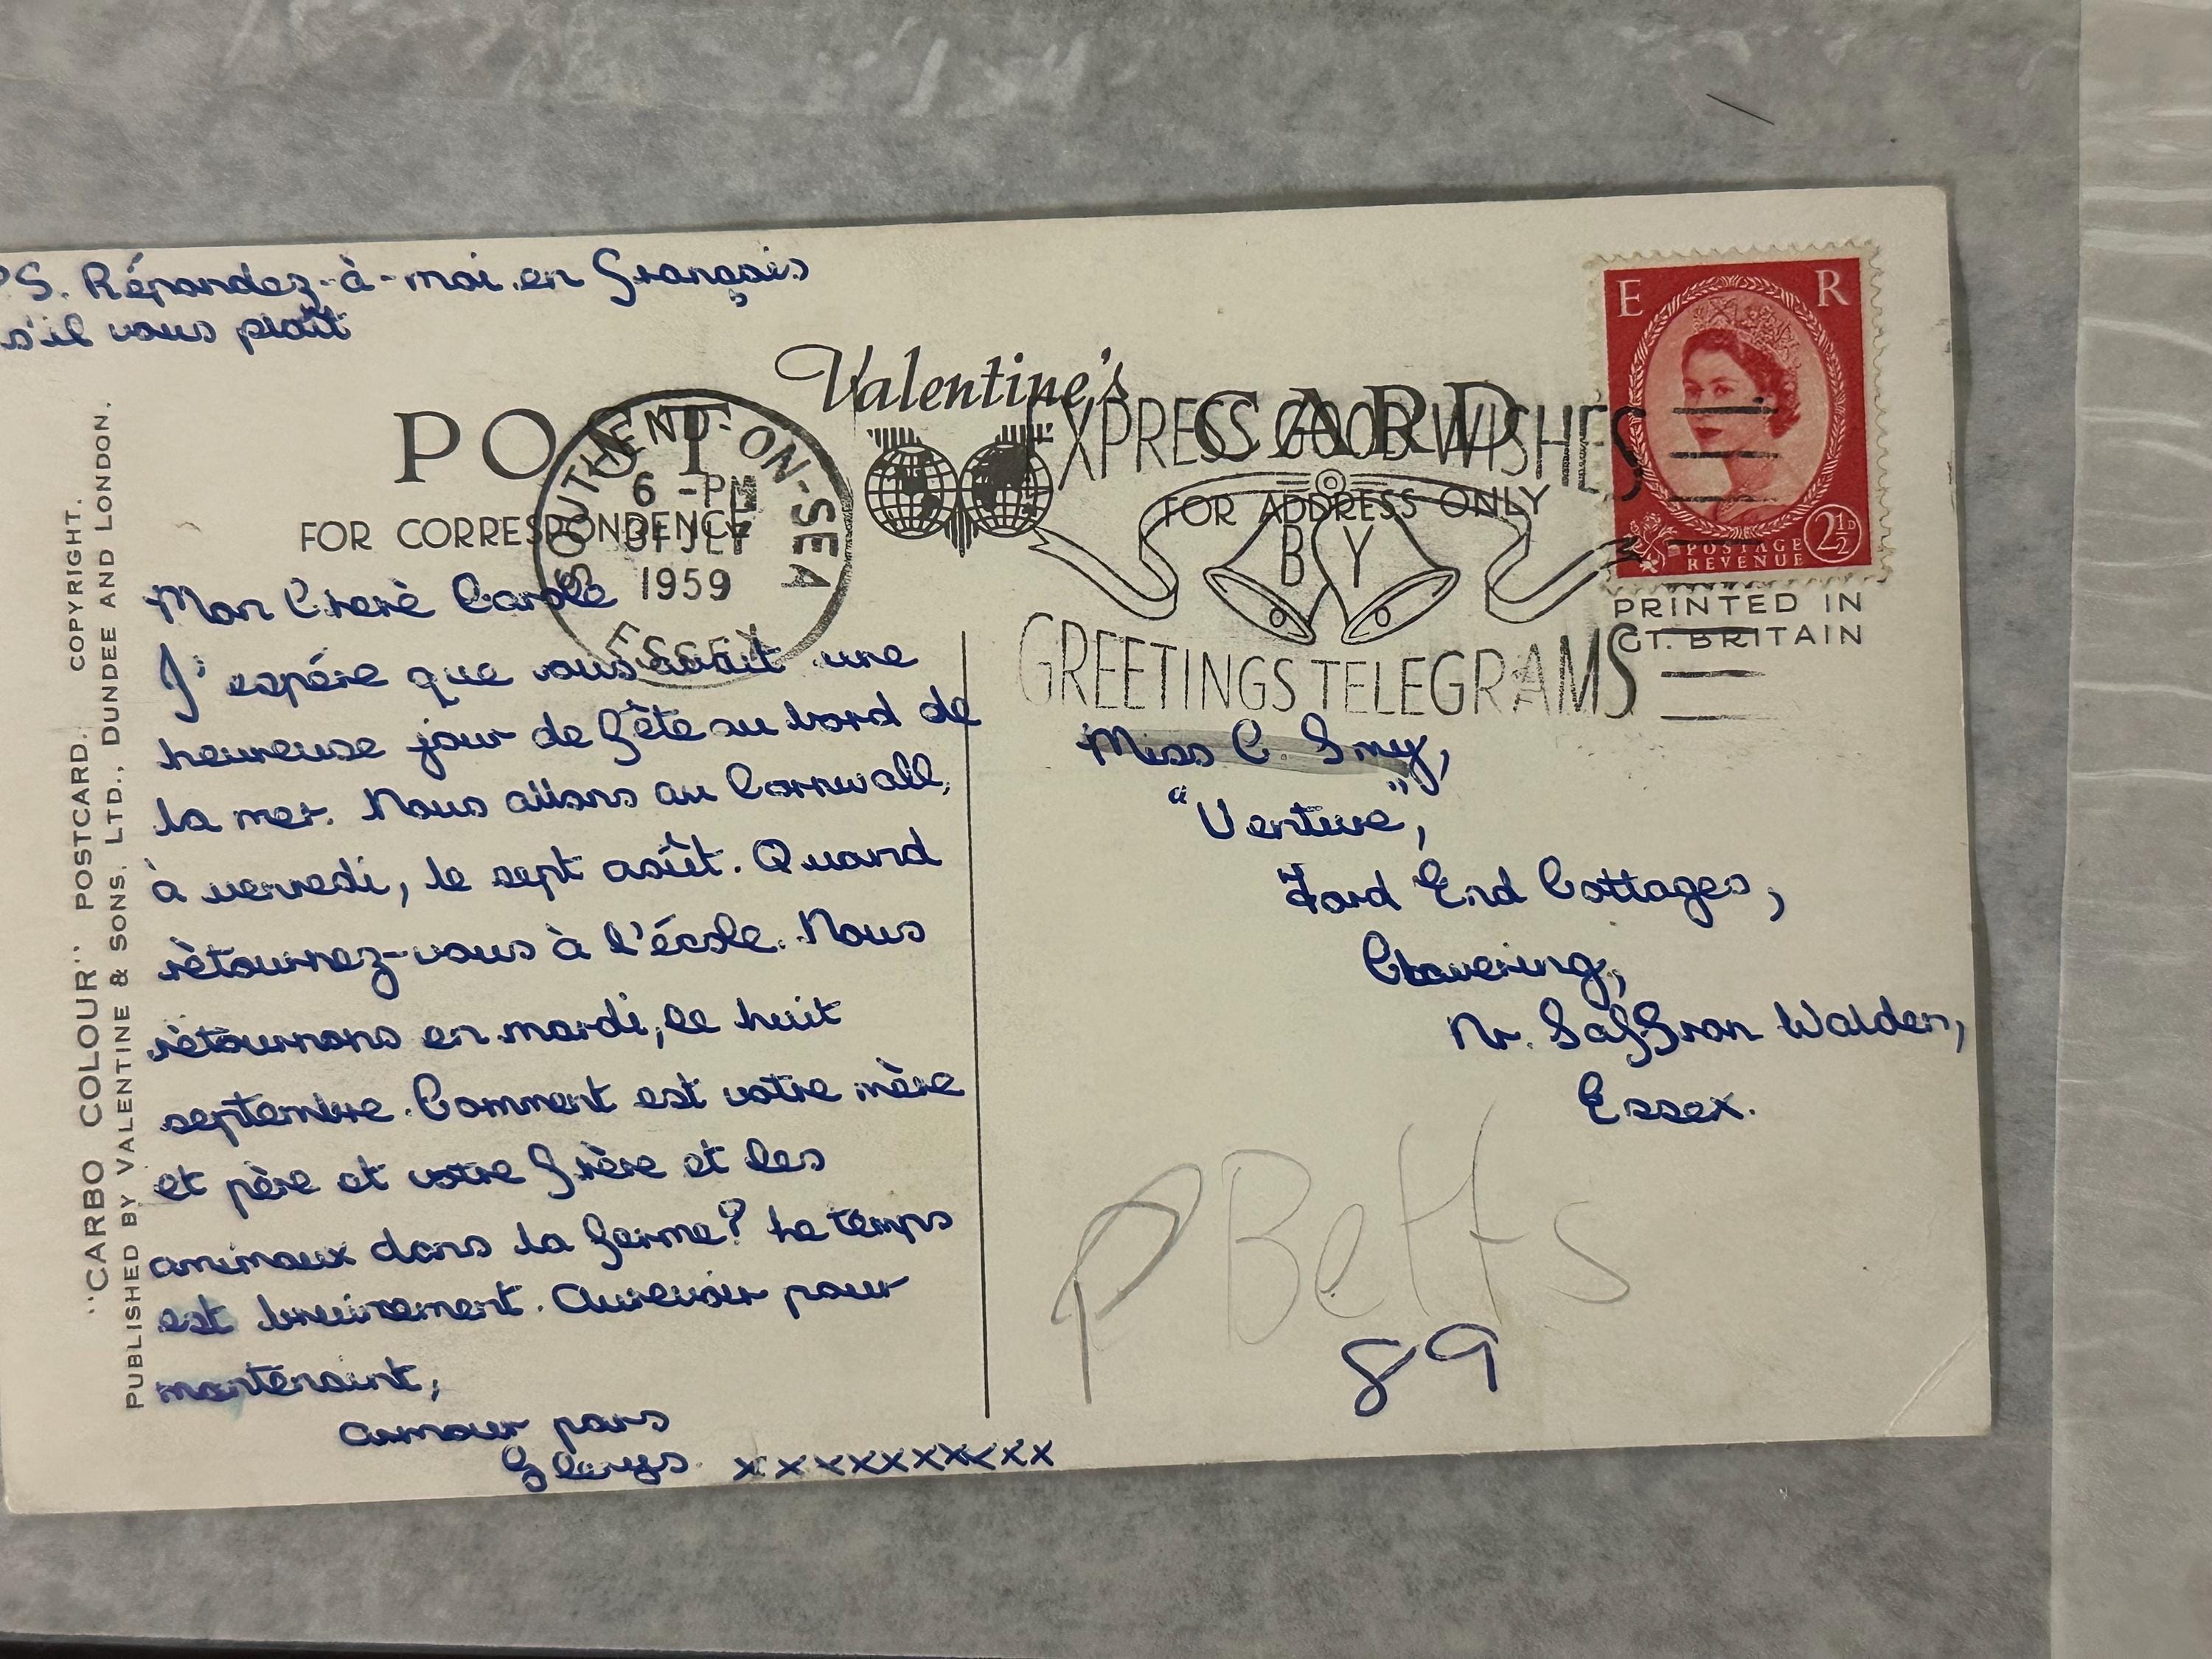 PS. Répondez-à-moi en français
s'il vous plaît
Valentine's
POST CARD
FOR CORRESPONDENCE
FOR ADDRESS ONLY
SOUTHEND-ON-SEA
6 - PM
31 JLY
1959
ESSEX
EXPRESS GOOD WISHES
BY
GREETINGS TELEGRAMS
E R
POSTAGE
REVENUE
2½D
PRINTED IN
GT. BRITAIN
"CARBO COLOUR" POSTCARD. COPYRIGHT.
PUBLISHED BY VALENTINE & SONS, LTD., DUNDEE AND LONDON.
Mon Carole
J'espére que vous avait une
heureuse jour de fête au bord de
la mer. Nous allons au Cornwall,
à venredi, le sept août. Quand
rètournez-vous à l'école. Nous
rètournons en mardi, le huit
septembre. Comment est votre mère
et père et votre frère et les
animaux dans la ferme? Le temps
est. Aurevoir pour
amour
Glenys xxxxxxxxxx
Miss C. Smy,
"Venture",
Ford End Cottages,
Clavering,
Nr. Saffron Walden,
Essex.
P Betts
89